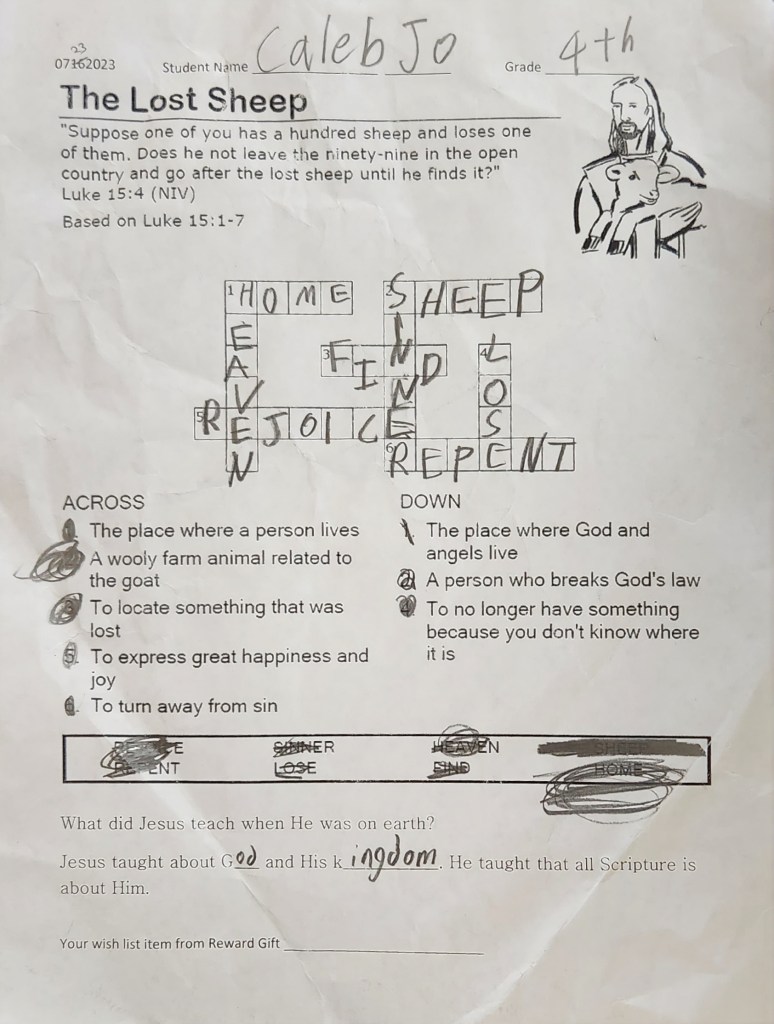 23
07162023 Student Name Caleb Jo Grade 4th
The Lost Sheep
"Suppose one of you has a hundred sheep and loses one
of them. Does he not leave the ninety-nine in the open
country and go after the lost sheep until he finds it?"
Luke 15:4 (NIV)
Based on Luke 15:1-7
1 HOME 2 SHEEP
HEAVEN
SINNER
3 FIND
4 LOSE
5 REJOICE
6 REPENT
ACROSS
1. The place where a person lives
2. A wooly farm animal related to
the goat
3. To locate something that was
lost
5. To express great happiness and
joy
6. To turn away from sin
DOWN
1. The place where God and
angels live
2. A person who breaks God's law
4. To no longer have something
because you don't kinow where
it is
REJOICE SINNER HEAVEN SHEEP
REPENT LOSE FIND HOME
What did Jesus teach when He was on earth?
Jesus taught about God and His kingdom. He taught that all Scripture is
about Him.
Your wish list item from Reward Gift